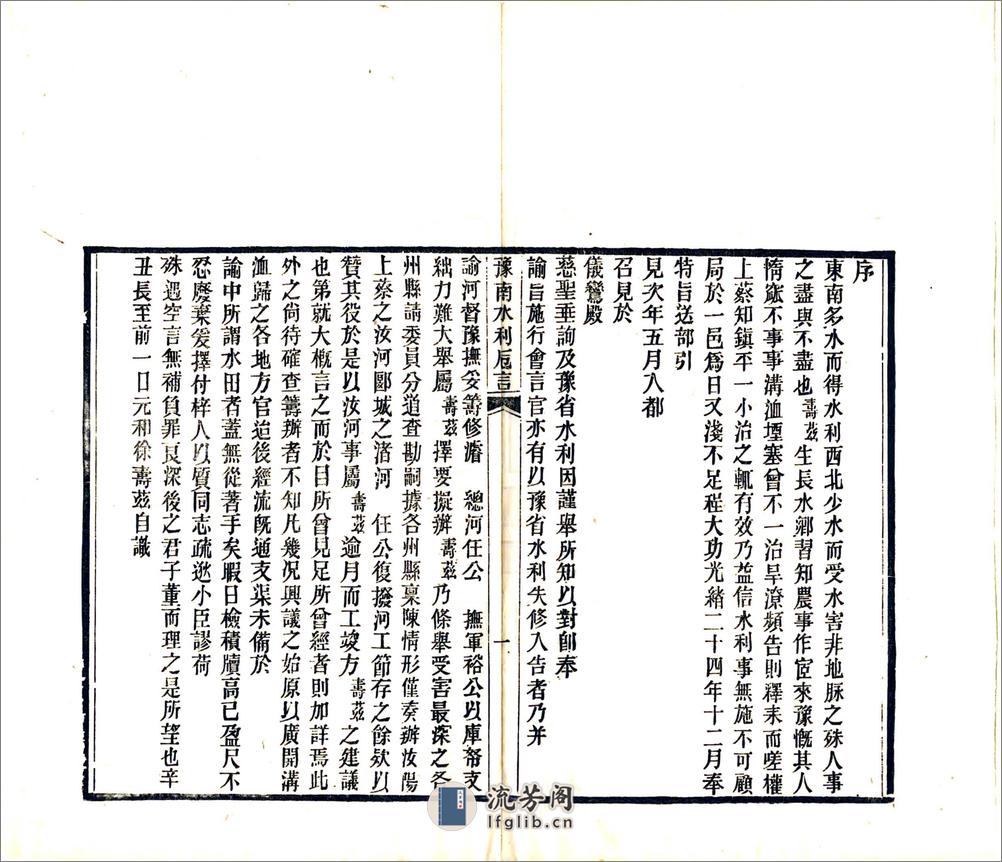 序
東南多水而得水利西北少水而受水害非地脈之殊人事
之盡與不盡也壽茲生長水鄉習知農事作宦來豫慨其人
惰窳不事事溝洫堙塞曾不一治旱潦頻告則釋耒而嗟權
上蔡知鎮平一小治之輒有效乃益信水利事無施不可顧
局於一邑爲日又淺不足程大功光緒二十四年十二月奉
特旨送部引
見次年五月入都
召見於
儀鸞殿
慈聖垂詢及豫省水利因謹舉所知以對卽奉
諭旨施行會言官亦有以豫省水利失修入告者乃并
豫南水利卮言
一
諭河督豫撫妥籌修濬 總河任公 撫軍裕公以庫帑支
絀力難大舉屬壽茲擇要擬辦壽茲乃條舉受害最深之各
州縣請委員分道查勘嗣據各州縣稟陳情形僅奏辦汝陽
上蔡之汝河郾城之渚河 任公復撥河工節存之餘欵以
贊其役於是以汝河事屬壽茲逾月而工竣方壽茲之建議
也第就大概言之而於目所曾見足所曾經者則加詳焉此
外之尚待確查籌辦者不知凡幾况興議之始原以廣開溝
洫歸之各地方官迨後經流旣通支渠未備於
諭中所謂水田者蓋無從著手矣暇日檢積牘高已盈尺不
忍廢棄爰擇付梓人以質同志疏逖小臣謬荷
殊遇空言無補負罪良深後之君子董而理之是所望也辛
丑長至前一日元和徐壽茲自識
流芳阁
lfglib.com